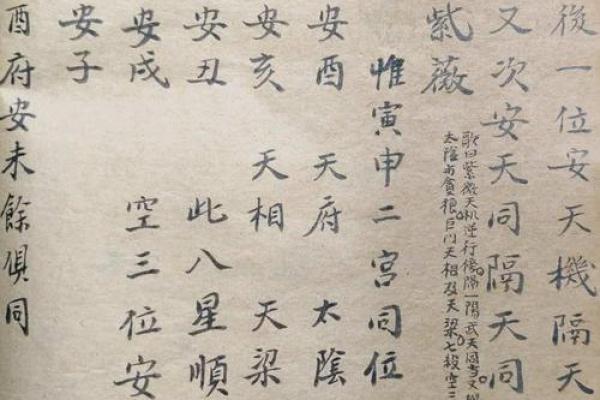 後一位安天機隔天
又次安天同隔天同
紫薇
歌曰紫微天机逆行傍隔一陽武天同当又
太陰而貪狼巨门天相及天梁七殺空三
惟寅申二宮同位
安酉 天府 太陰
安亥 天相 天梁
安丑 此八星順
安戌 空三位安
安子
酉府安未餘俱同